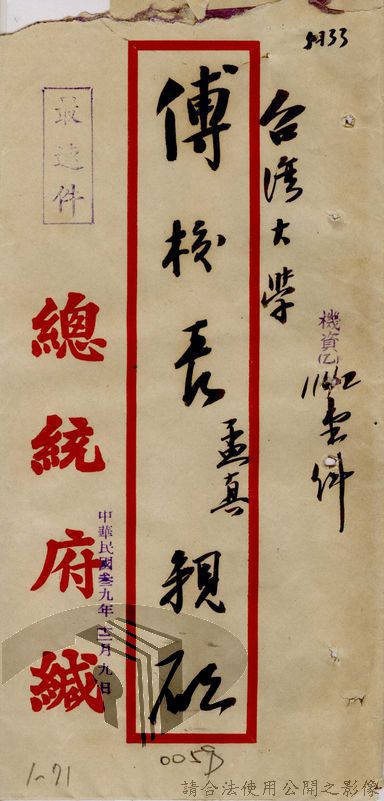 5033
台灣大學
機資(乙)
壹件
傅校長孟真親啟
最速件
總統府緘
中華民國叁九年十二月九日
0059
1-71
請合法使用公開之影像